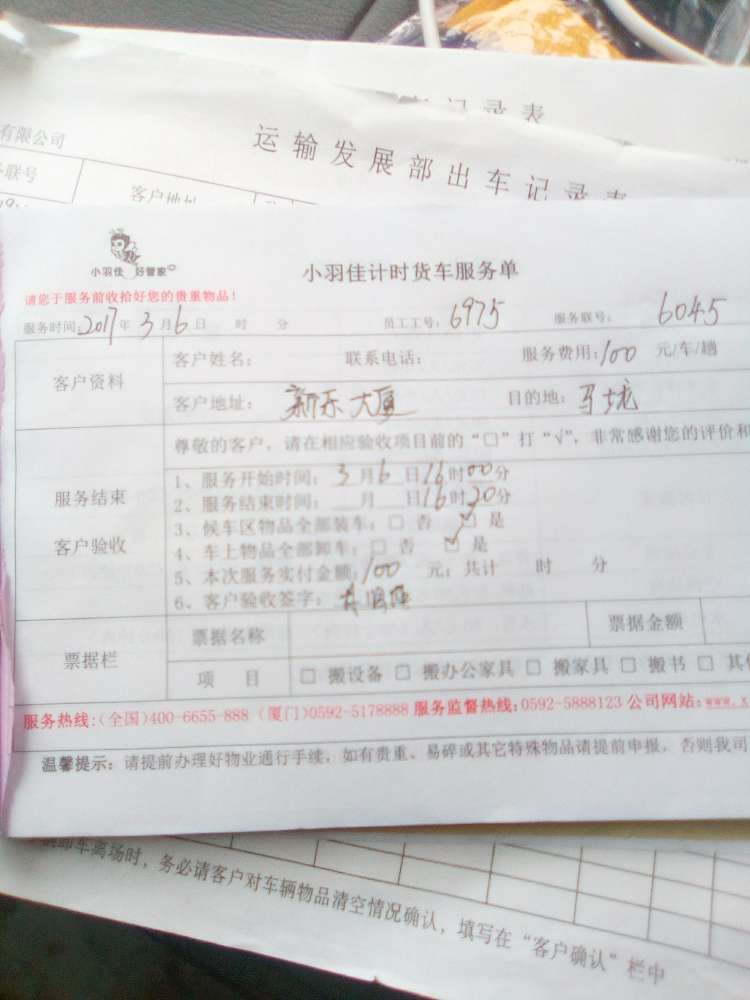 记录表
有限公司
运输发展部出车记录表
联号
客户地址
小羽佳 好管家
小羽佳计时货车服务单
请您于服务前收拾好您的贵重物品！
服务时间：2017年3月6日 时 分 员工工号：6975 服务联号：6045
客户资料
客户姓名： 联系电话： 服务费用：100 元/车/趟
客户地址：新乐大厦 目的地：马垅
尊敬的客户，请在相应验收项目前的“□”打“√”，非常感谢您的评价和
服务结束
客户验收
1、服务开始时间：3月6日16时00分
2、服务结束时间：__月__日16时20分
3、候车区物品全部装车：□ 否 ☑ 是
4、车上物品全部卸车：□ 否 ☑ 是
5、本次服务实付金额：100 元；共计 时 分
6、客户验收签字：
票据栏
票据名称 票据金额
项 目 □ 搬设备 □ 搬办公家具 □ 搬家具 □ 搬书 □ 其他
服务热线：(全国)400-6655-888 (厦门)0592-5178888 服务监督热线：0592-5888123 公司网站：www.x
温馨提示：请提前办理好物业通行手续，如有贵重、易碎或其它特殊物品请提前申报，否则我司
卸车离场时，务必请客户对车辆物品清空情况确认，填写在“客户确认”栏中